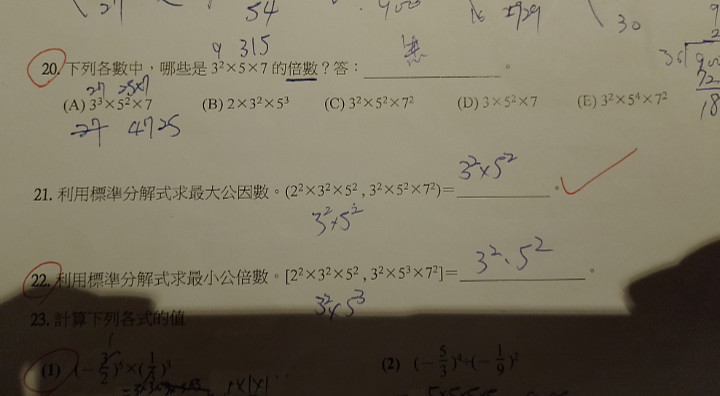 54
30
9 315
20. 下列各數中，哪些是 3²×5×7 的倍數？答： 無 。
27 25×7
(A) 3³×5²×7 (B) 2×3²×5³ (C) 3²×5²×7² (D) 3×5²×7 (E) 3²×5⁴×7²
27 4725
21. 利用標準分解式求最大公因數。(2²×3²×5² , 3²×5²×7²)= 3²×5² 。
3²×5²
22. 利用標準分解式求最小公倍數。[2²×3²×5² , 3²×5³×7²]= 3²·5² 。
3²×5³
23. 計算下列各式的值
(1) (-3/2)³×(1/ )³ (2) (-5/3)⁴÷(-1/9)²
1×1×1